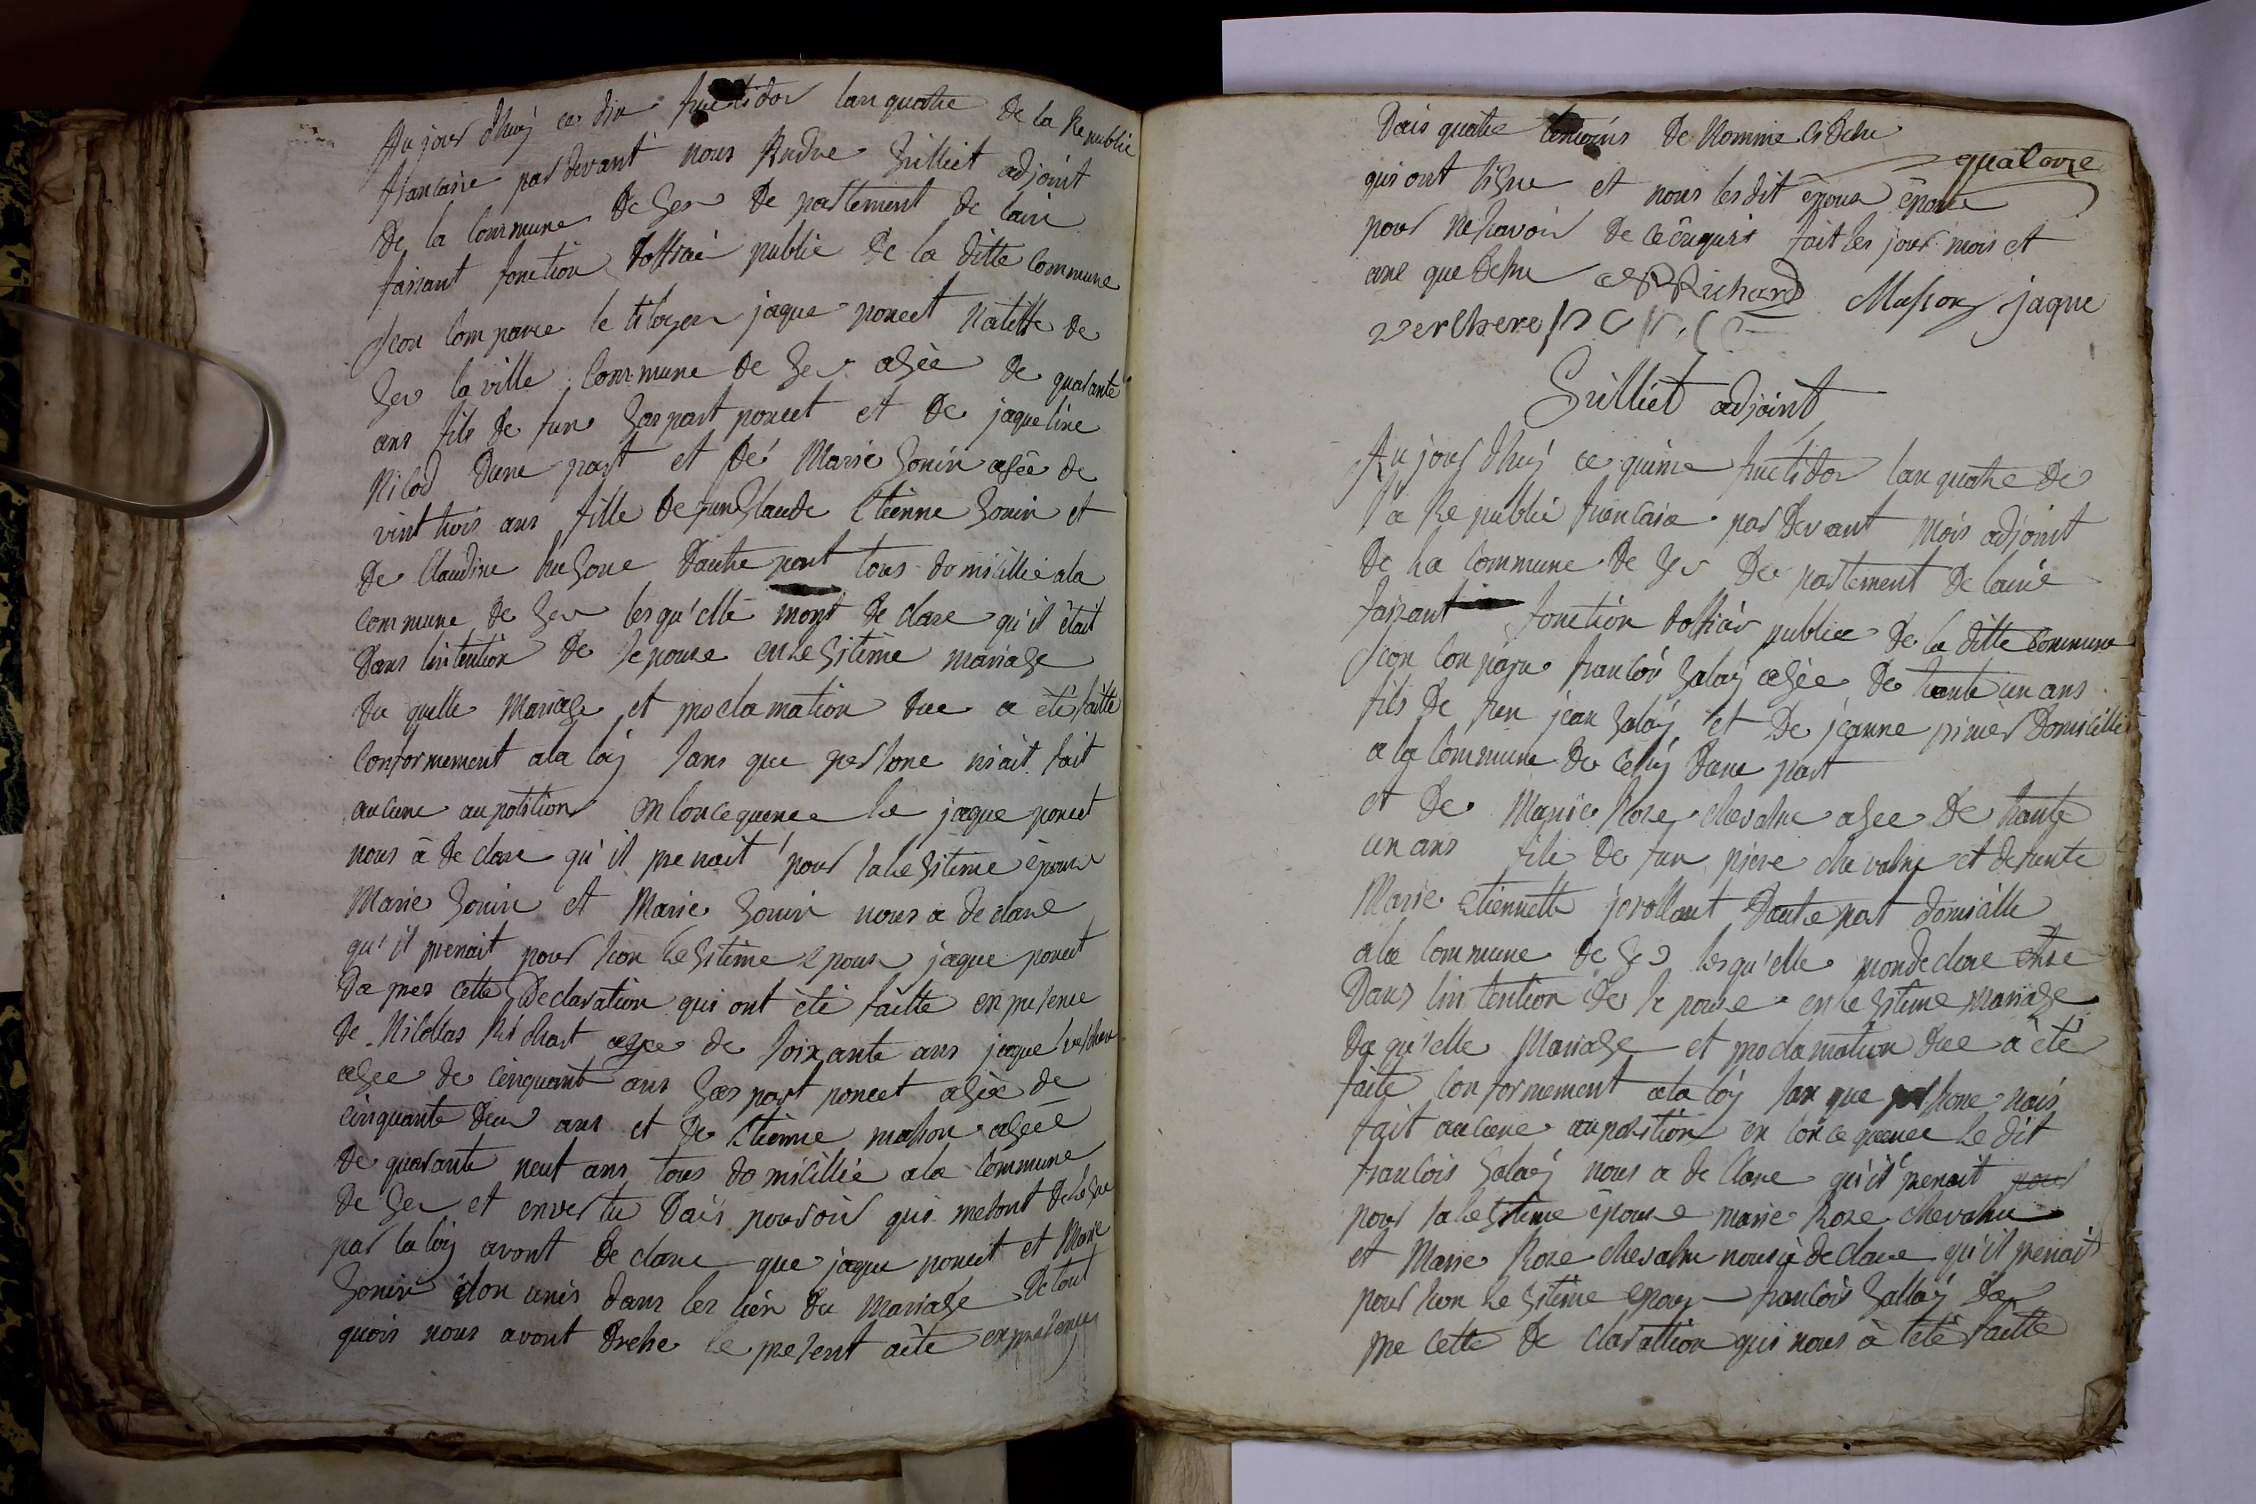 Aujourdhuÿ ce dix fructidor lan quatre de la Republic
francaise par devant nous Andre Gilliet adjoint
De la Commune De Gex De partement De lain
faisant fonction dofficié public De la ditte Commune
Son Comparue le Citoyen jaque poncet Natiffe de
Gex la ville Commune De Gex agée de quarante
ans fils De fun Gaspart poncet et De jaqueline
Nicod Dune part et De Marie Gonin agée de
vint trois ans fille De fun Glaude Etienne Gonin et
De Claudine hugone Dautre part tous domicillie ala
Commune De Gex lesqu'elle mont De clare qu'il êtait
Dans lintention De sepouse en Legitime mariage
Du quelle Mariage et proclamation due a eté faitte
Conformement ala loÿ sans que persone niait fait
aucune auposition en Concequence le jaque poncet
nous à De clare qu'il prenait pour sa Legitime épouse
Marie Gonin et Marie Gonin nous a declare
qu'il prenait pour son Legitime epoux jaque poncet
Da pres cette Declaration qui ont été faitte en presence
De Nicollas Richart agee de soixante ans jaque verchere
agee de cinquant ans Gas part poncet agée de
cinquante Deux ans et De Etienne masson agéé
De quarante neuf ans tous domicillié ala Commune
De Gex et envertu Dais pouvoir qui metont Delegue
par la loÿ avont De clare que jaque poncet et Marie
Gonin son unis dans les lien du Mariage De tout
quois nous avont Drese le present aite en presence
Dais quatre temoins De Nomme ci Desu
quatorze
qui ont signe et nous lesdit epoux épouse
pour ne savoir De ce enquis fait les jour mois et
ane que Desu Richard Masson jaque
verchere
Gilliet adjoint
Aujourdhuÿ ce quinze fructidor lan quatre De
la Republic francaise par Devant Mois adjoint
De La Commune De Gex De partement De lain
faisant fonction dofficier publice De la ditte Commune
Son Conparu francois Galaÿ agée De trante un ans
fils De feu jean Galaÿ et De jeanne Domicillie
a la Commune De Cessÿ Dune part
et De Marie Rose chevalue agee De trante
un ans fille De fun piere chevalue et defunte
Marie Etiennette Dautre part domicille
ala Commune De Gex lesqu'elle monde clare etre
Dans lin tention De se pouse en Legitime Mariage
Du qu'elle Mariage et proclamation Due à été
faite Conformement ala loÿ san que persone nais
fait aucune auposition en Concequence Le dit
francois Galaÿ nous a de Clare qu'il prenait pour
pour sa legitime épouse marie Rose chevalue
et Marie Rose chevalue nous à declare qu'il prenait
pour son Legitime epoux francois Gallaÿ Da
pre Cette De clarattion qui nous à teté faitte